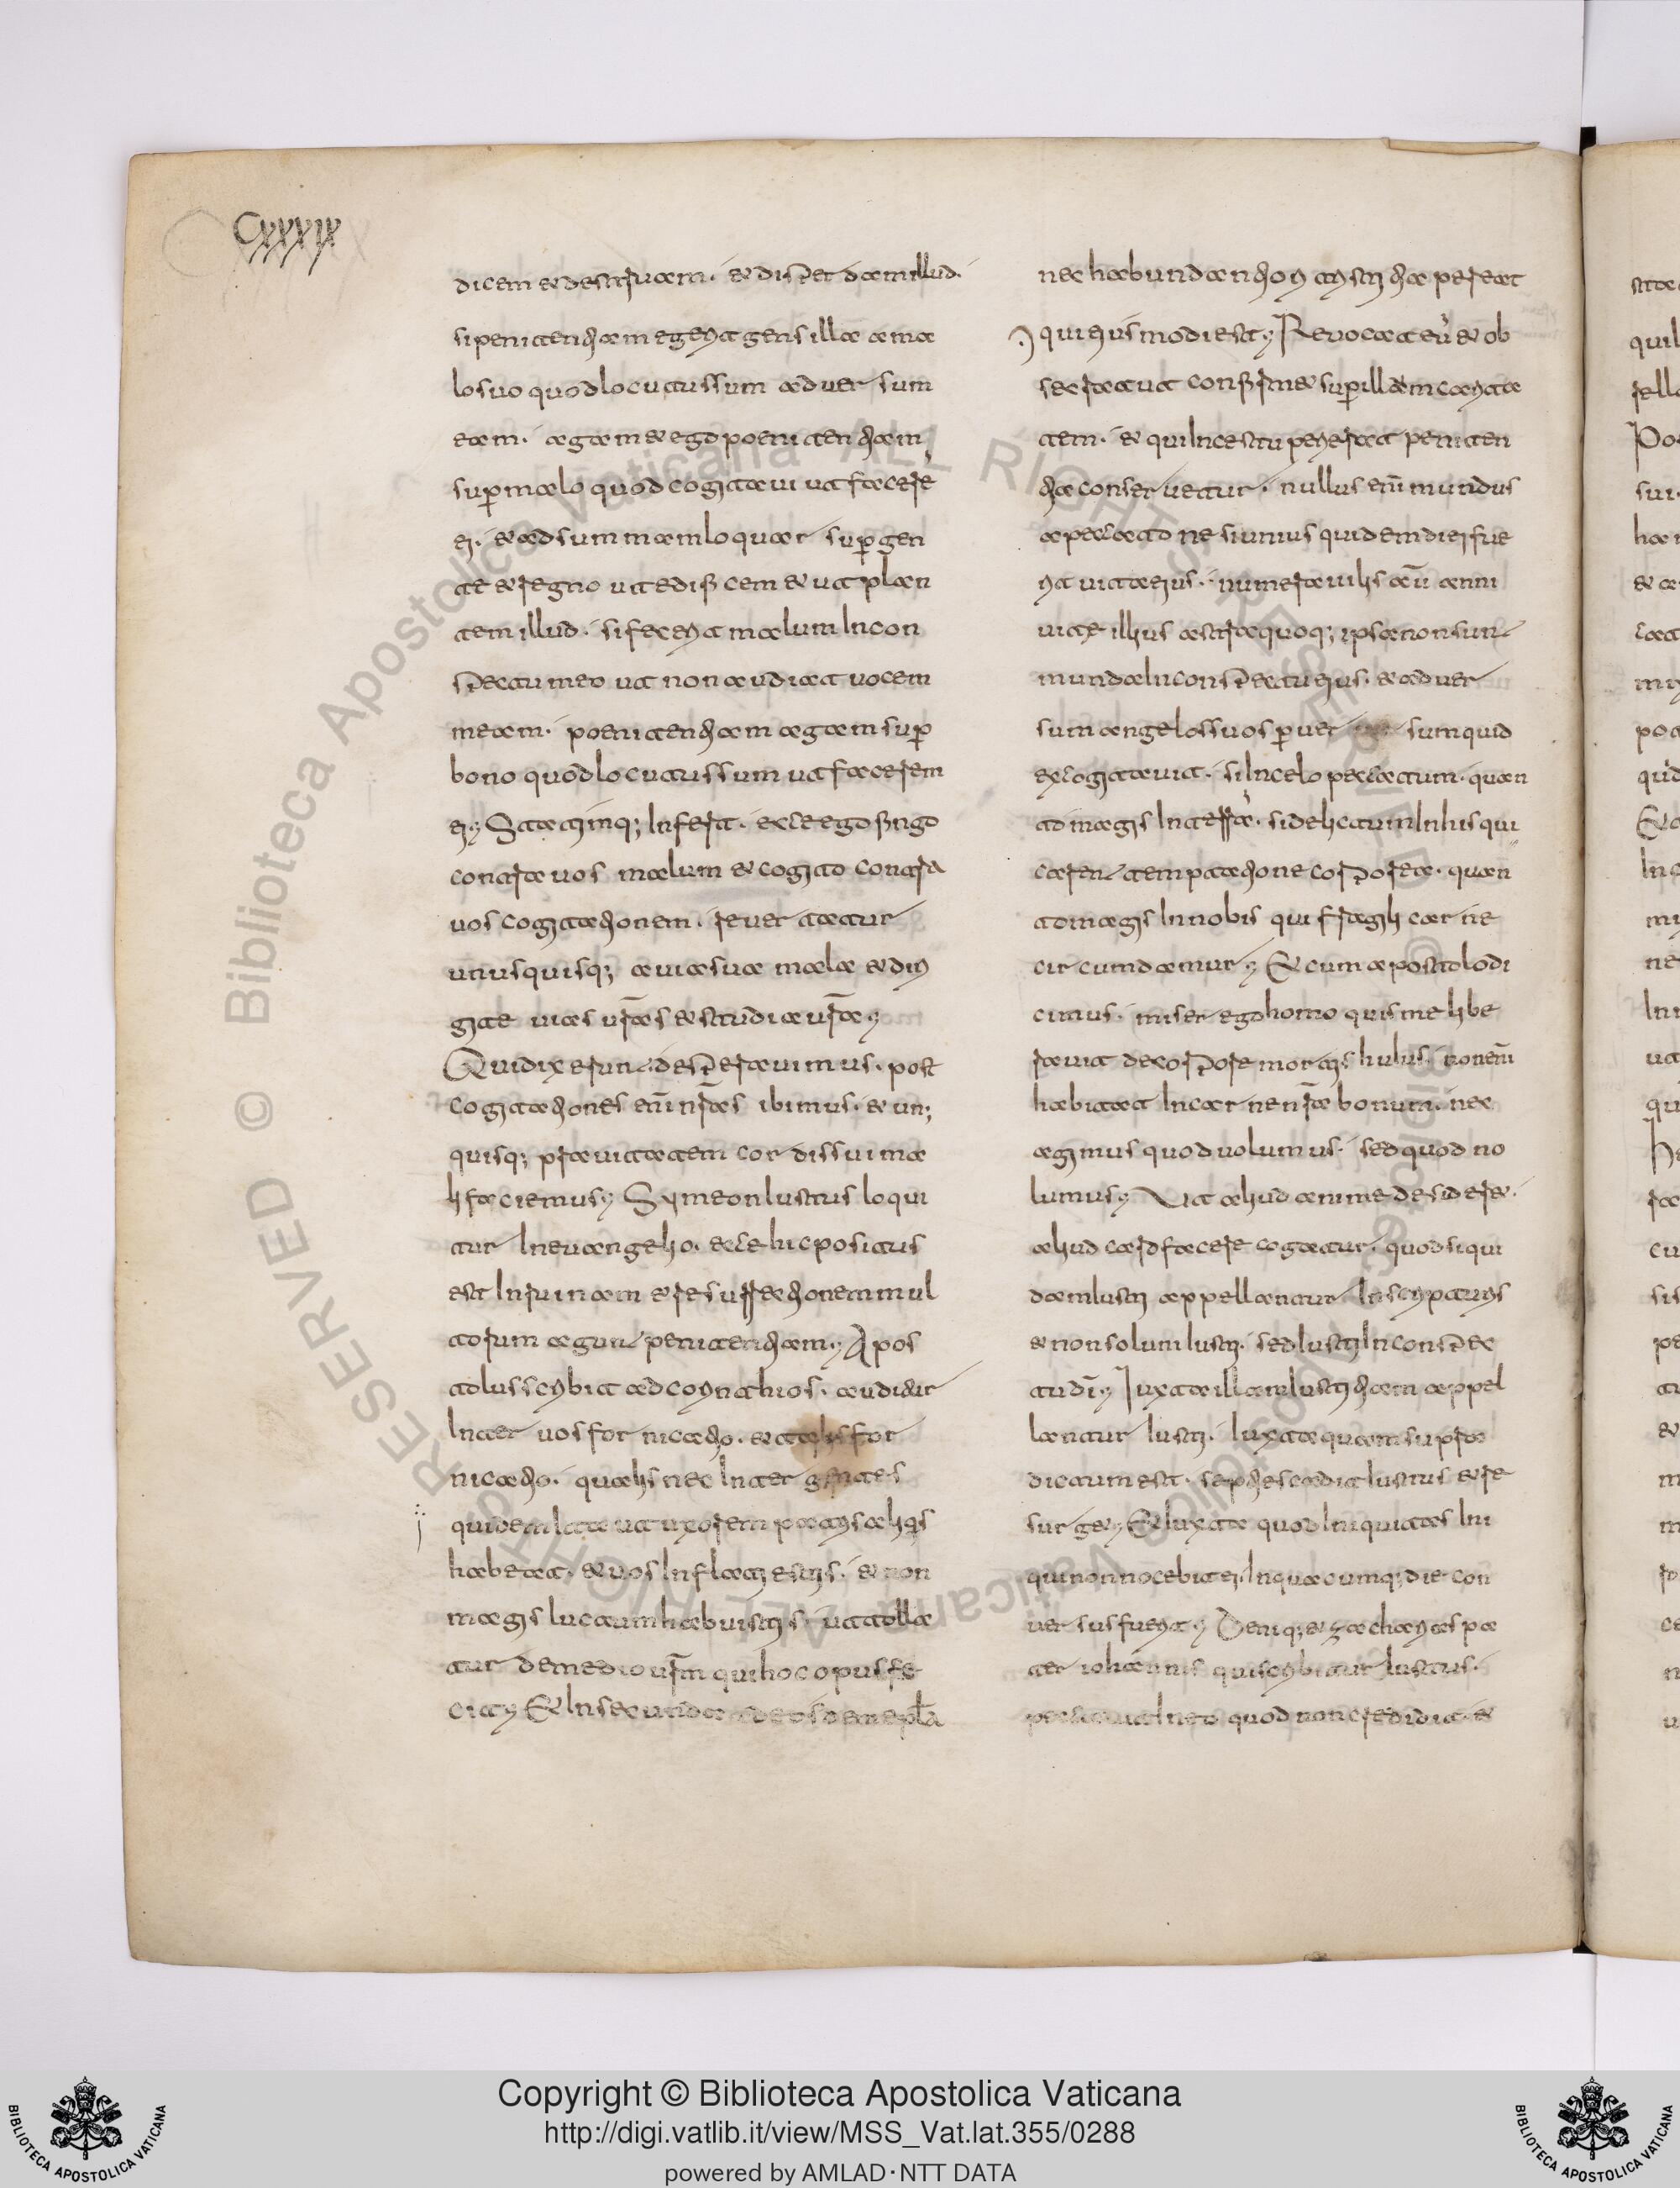 Cxxxix
dicem et destruam. et disperdam illud.
si penitentiam egerit gens illa a ma
lo suo quod locutus sum adversum
eam. agam et ego poenitentiam
sup malo quod cogitavi ut facere
ei. et ad summam loquar sup gen
te et regno ut edificem et ut plan
tem illud. si fecerit malum in con
spectu meo ut non audiat vocem
meam. poenitentiam agam sup
bono quod locutus sum ut facerem
ei; Statimq; infert. ecce ego fingo
contra vos malum et cogito contra
vos cogitationem. revertatur
unusquisq; a via sua mala et diri
gite vias vras et studia vra;
Qui dixerunt desperavimus. post
cogitationes enī nras ibimus. et un;
quisq; pravitatem cordis sui ma
li faciemus; Symeon iustus loqui
tur in evangelio. ecce hic positus
est in ruinam et resurrectionem mul
torum agunt penitentiam; Apos
tolus scribit ad corinthios. auditur
inter vos fornicatio. et talis for
nicatio. qualis nec inter gentes
quidem ita ut uxorem patris aliqis
habeat. et vos inflati estis. et non
magis luctum habuistis. ut tolla
tur de medio vrm qui hoc opus fe
cit; Et in secunda ad eosdem epla
ne habundantiori tristitia pereat
qui eiusmodi est; Revocat eū et ob
secrat ut confirmet sup illum carita
tem. et qui incestu perierat peniten
tia conservetur. nullus enī mundus
a peccato nec si unius quidem diei fue
rit vita eius. numerabilis autē anni
vitae illius astra quoq; ipsa non sunt
mundae in conspectu eius. et adver
sum angelos suos perversum quid
excogitavit. si in celo peccatum. quan
to magis in terra. si delictum in his qui
carent temptatione corporea. quan
to magis in nobis qui fragili carne
circumdamur; Et cum apostolo di
cimus. miser ego homo quis me libe
ravit de corpore mortis huius. non enī
habitat in carne nra bonum. nec
agimus quod volumus. sed quod no
lumus; Ut aliud anime desideret.
aliud caro facere cogatur. quod si qui
dam iusti appellantur in scripturis
et non solum iusti. sed iusti in conspec
tu dī; Iuxta illam iustitiam appel
lantur iusti. iuxta quam supra
dictum est. septies cadit iustus et re
surget; Et iuxta quod iniquitas ini
qui non nocebit ei. in quacumq; die con
versus fuerit; Deniq; et zacharias pa
ter iohannis qui scribitur iustus.
peccavit in eo quod non credidit. et